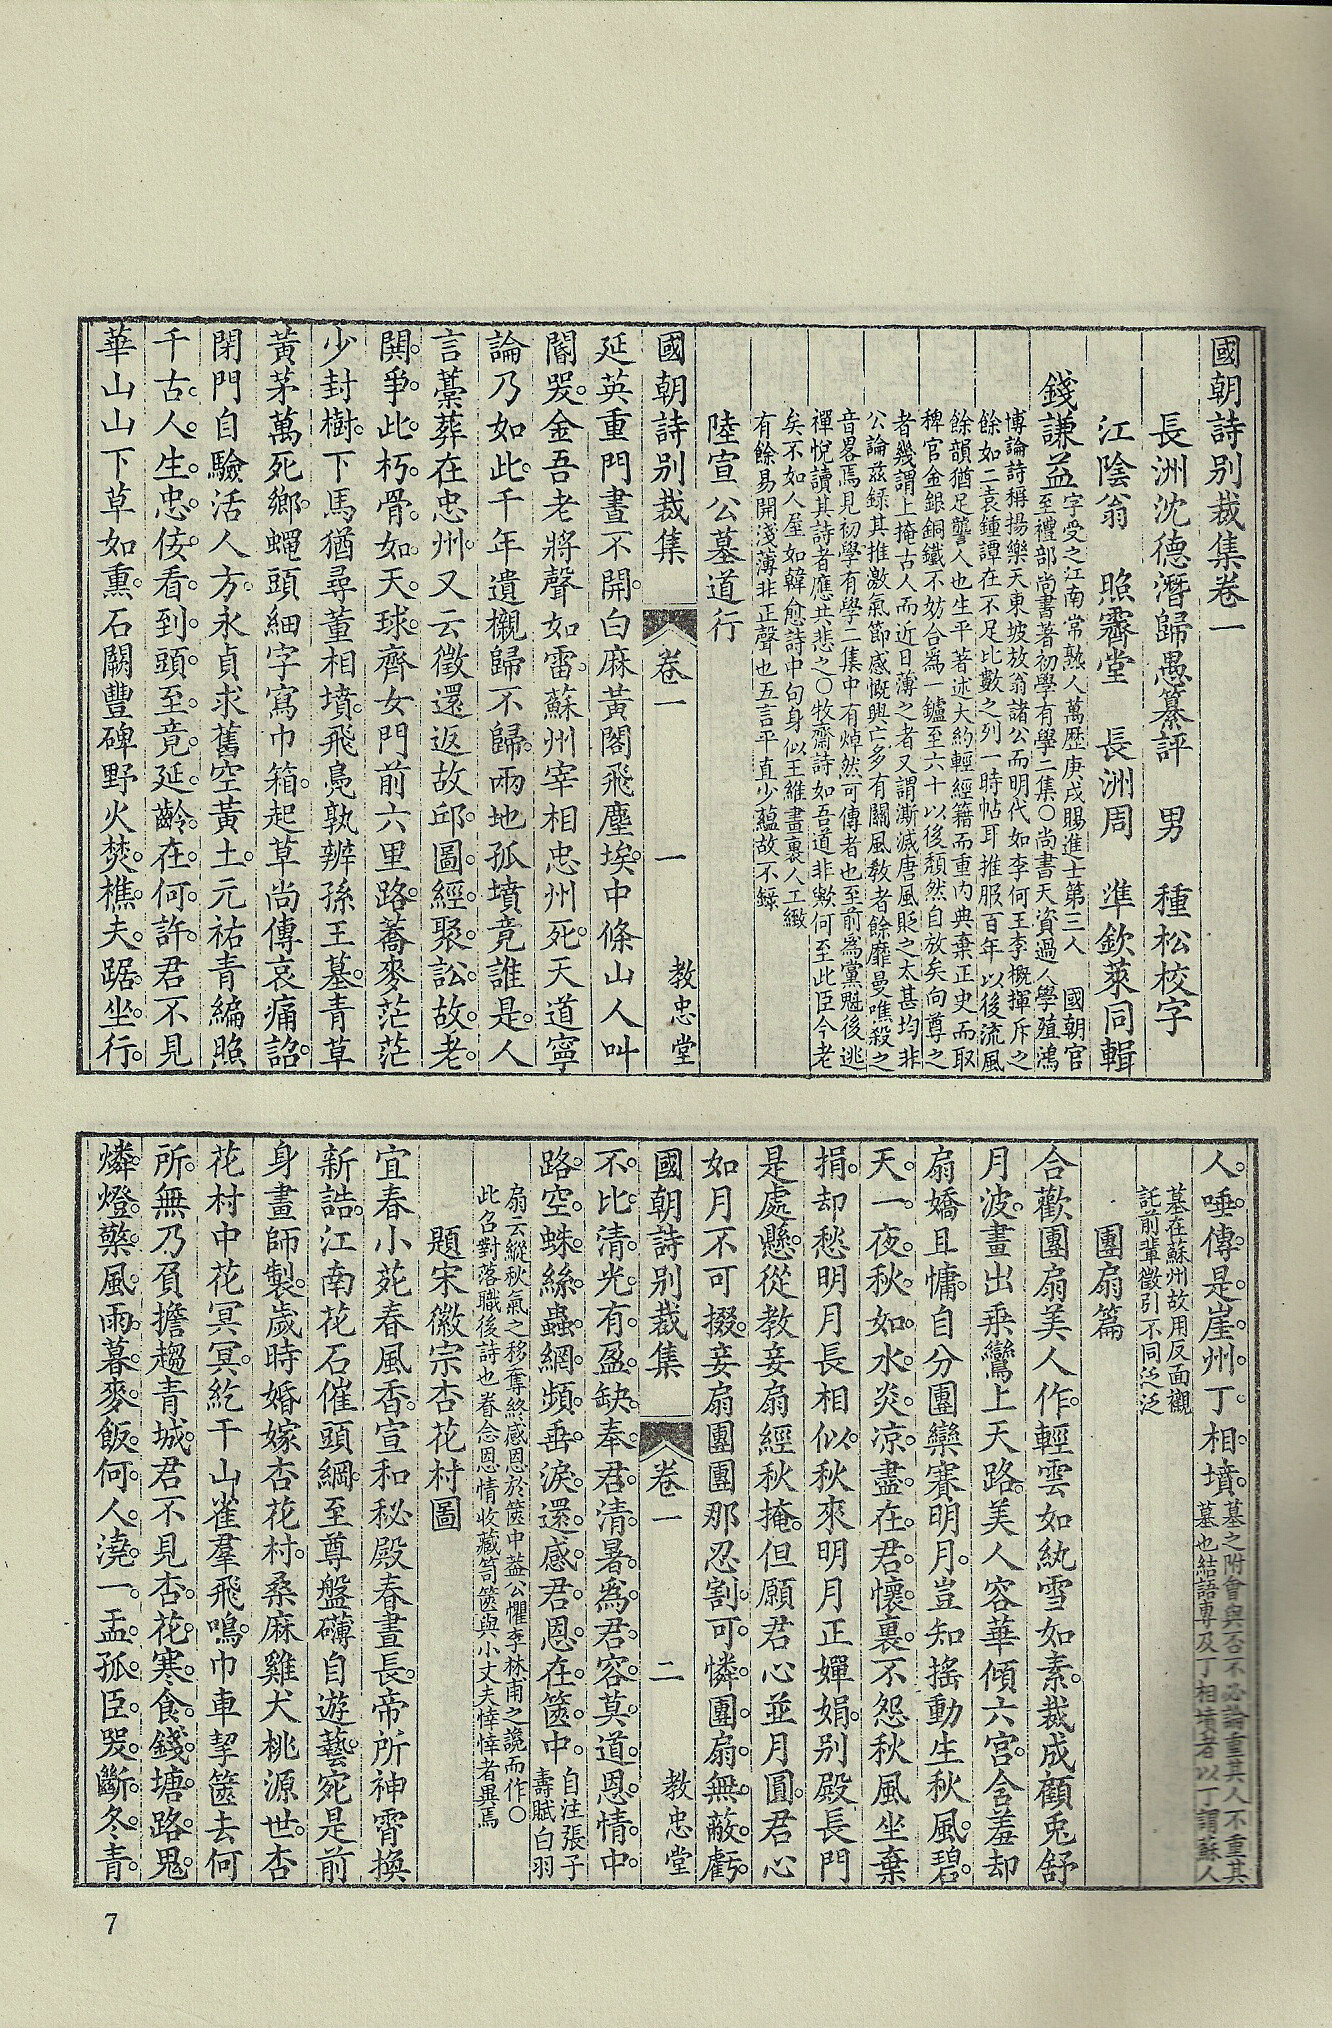 國朝詩別裁集卷一
長洲沈德潛歸愚纂評　男　種松校字
江陰翁　照霽堂　長洲周　準欽萊同輯
錢謙益字受之江南常熟人萬歷庚戌賜進士第三人　國朝官
至禮部尚書著初學有學二集○尚書天資過人學殖鴻
博論詩稱揚樂天東坡放翁諸公而明代如李何王李概揮斥之
餘如二袁鍾譚在不足比數之列一時帖耳推服百年以後流風
餘韻猶足聾人也生平著述大約輕經籍而重內典棄正史而取
稗官金銀銅鐵不妨合爲一鑪至六十以後頹然自放矣向尊之
者幾謂上掩古人而近日薄之者又謂澌滅唐風貶之太甚均非
公論茲録其推激氣節感慨興亡多有關風教者餘靡曼噍殺之
音畧焉見初學有學二集中有焯然可傳者也至前爲黨魁後逃
禪悅讀其詩者應共悲之○牧齋詩如吾道非歟何至此臣今老
矣不如人屋如韓愈詩中句身似王維畫裏人工緻
有餘易開淺薄非正聲也五言平直少蘊故不錄
陸宣公墓道行
延英重門晝不開白麻黃閣飛塵埃中條山人叫
閽哭金吾老將聲如雷蘇州宰相忠州死天道寧
論乃如此千年遺櫬歸不歸兩地孤墳竟誰是人
言藁葬在忠州又云徵還返故邱圖經聚訟故老
鬨爭此朽骨如天球齊女門前六里路蕎麥茫茫
少封樹下馬猶尋董相墳飛鳧孰辨孫王墓青草
黃茅萬死鄉蠅頭細字寫巾箱起草尚傳哀痛詔
閉門自驗活人方永貞求舊空黃土元祐青編照
千古人生忠佞看到頭至竟延齡在何許君不見
華山山下草如熏石闕豐碑野火焚樵夫踞坐行
國朝詩別裁集　卷一　一　教忠堂
人唾傳是崖州丁相墳墓之附會與否不必論重其人不重其
墓也結語專及丁相墳者以丁謂蘇人
墓在蘇州故用反面觀
託前輩徵引不同泛泛
團扇篇
合歡團扇美人作輕雲如紈雪如素裁成顧兔舒
月波畫出乘鸞上天路美人容華傾六宮含羞却
扇嬌且慵自分團欒賽明月豈知搖動生秋風碧
天一夜秋如水炎凉盡在君懷裏不怨秋風坐棄
捐却愁明月長相似秋來明月正嬋娟別殿長門
是處懸從教妾扇經秋掩但願君心並月圓君心
如月不可掇妾扇團團那忍割可憐團扇無蔽虧
不比清光有盈缺奉君清暑爲君容莫道恩情中
路空蛛絲蟲網頻垂淚還感君恩在篋中自注張子
壽賦白羽
扇云縱秋氣之移奪終感恩於篋中蓋公懼李林甫之譖而作○
此召對落職後詩也眷念恩情收藏笥篋與小丈夫悻悻者異焉
題宋徽宗杏花村圖
宜春小苑春風香宣和秘殿春晝長帝所神霄換
新誥江南花石催頭綱至尊盤礴自遊藝宛是前
身畫師製歲時婚嫁杏花村桑麻雞犬桃源世杏
花村中花冥冥紇干山雀羣飛鳴巾車挈篋去何
所無乃頁擔趨青城君不見杏花寒食錢塘路鬼
燐燈檠風雨暮麥飯何人澆一盂孤臣哭斷冬青
國朝詩別裁集　卷一　二　教忠堂
7